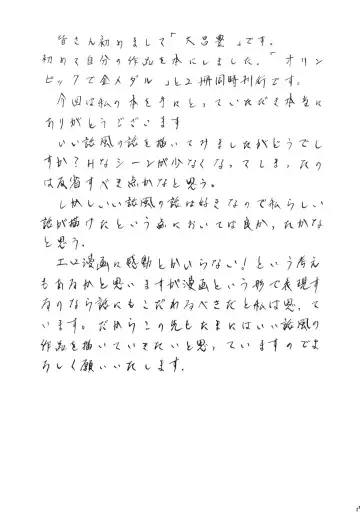 皆さん初めまして「大呂豊」です。
初めて自分の作品を本にしました。「オリン
ピックで金メダル」と2冊同時刊行です。
今回は私の本を手にとっていただき本当に
ありがとうございます
いい話風の話を描いてみましたがどうで
すか?Hなシーンが少なくなってしまったの
は反省すべき点かなと思う。
しかしいい話風の話は好きなので私らしい
話が描けたという面においては良かったかな
と思う。
エロ漫画に感動とかいらない!という考え
もあるかと思いますが漫画という形で表現す
るのなら話にもこだわるべきだと私は思って
います。だからこの先もたまにはいい話風の
作品を描いていきたいと思っていますのでよ
ろしく願いいたします.